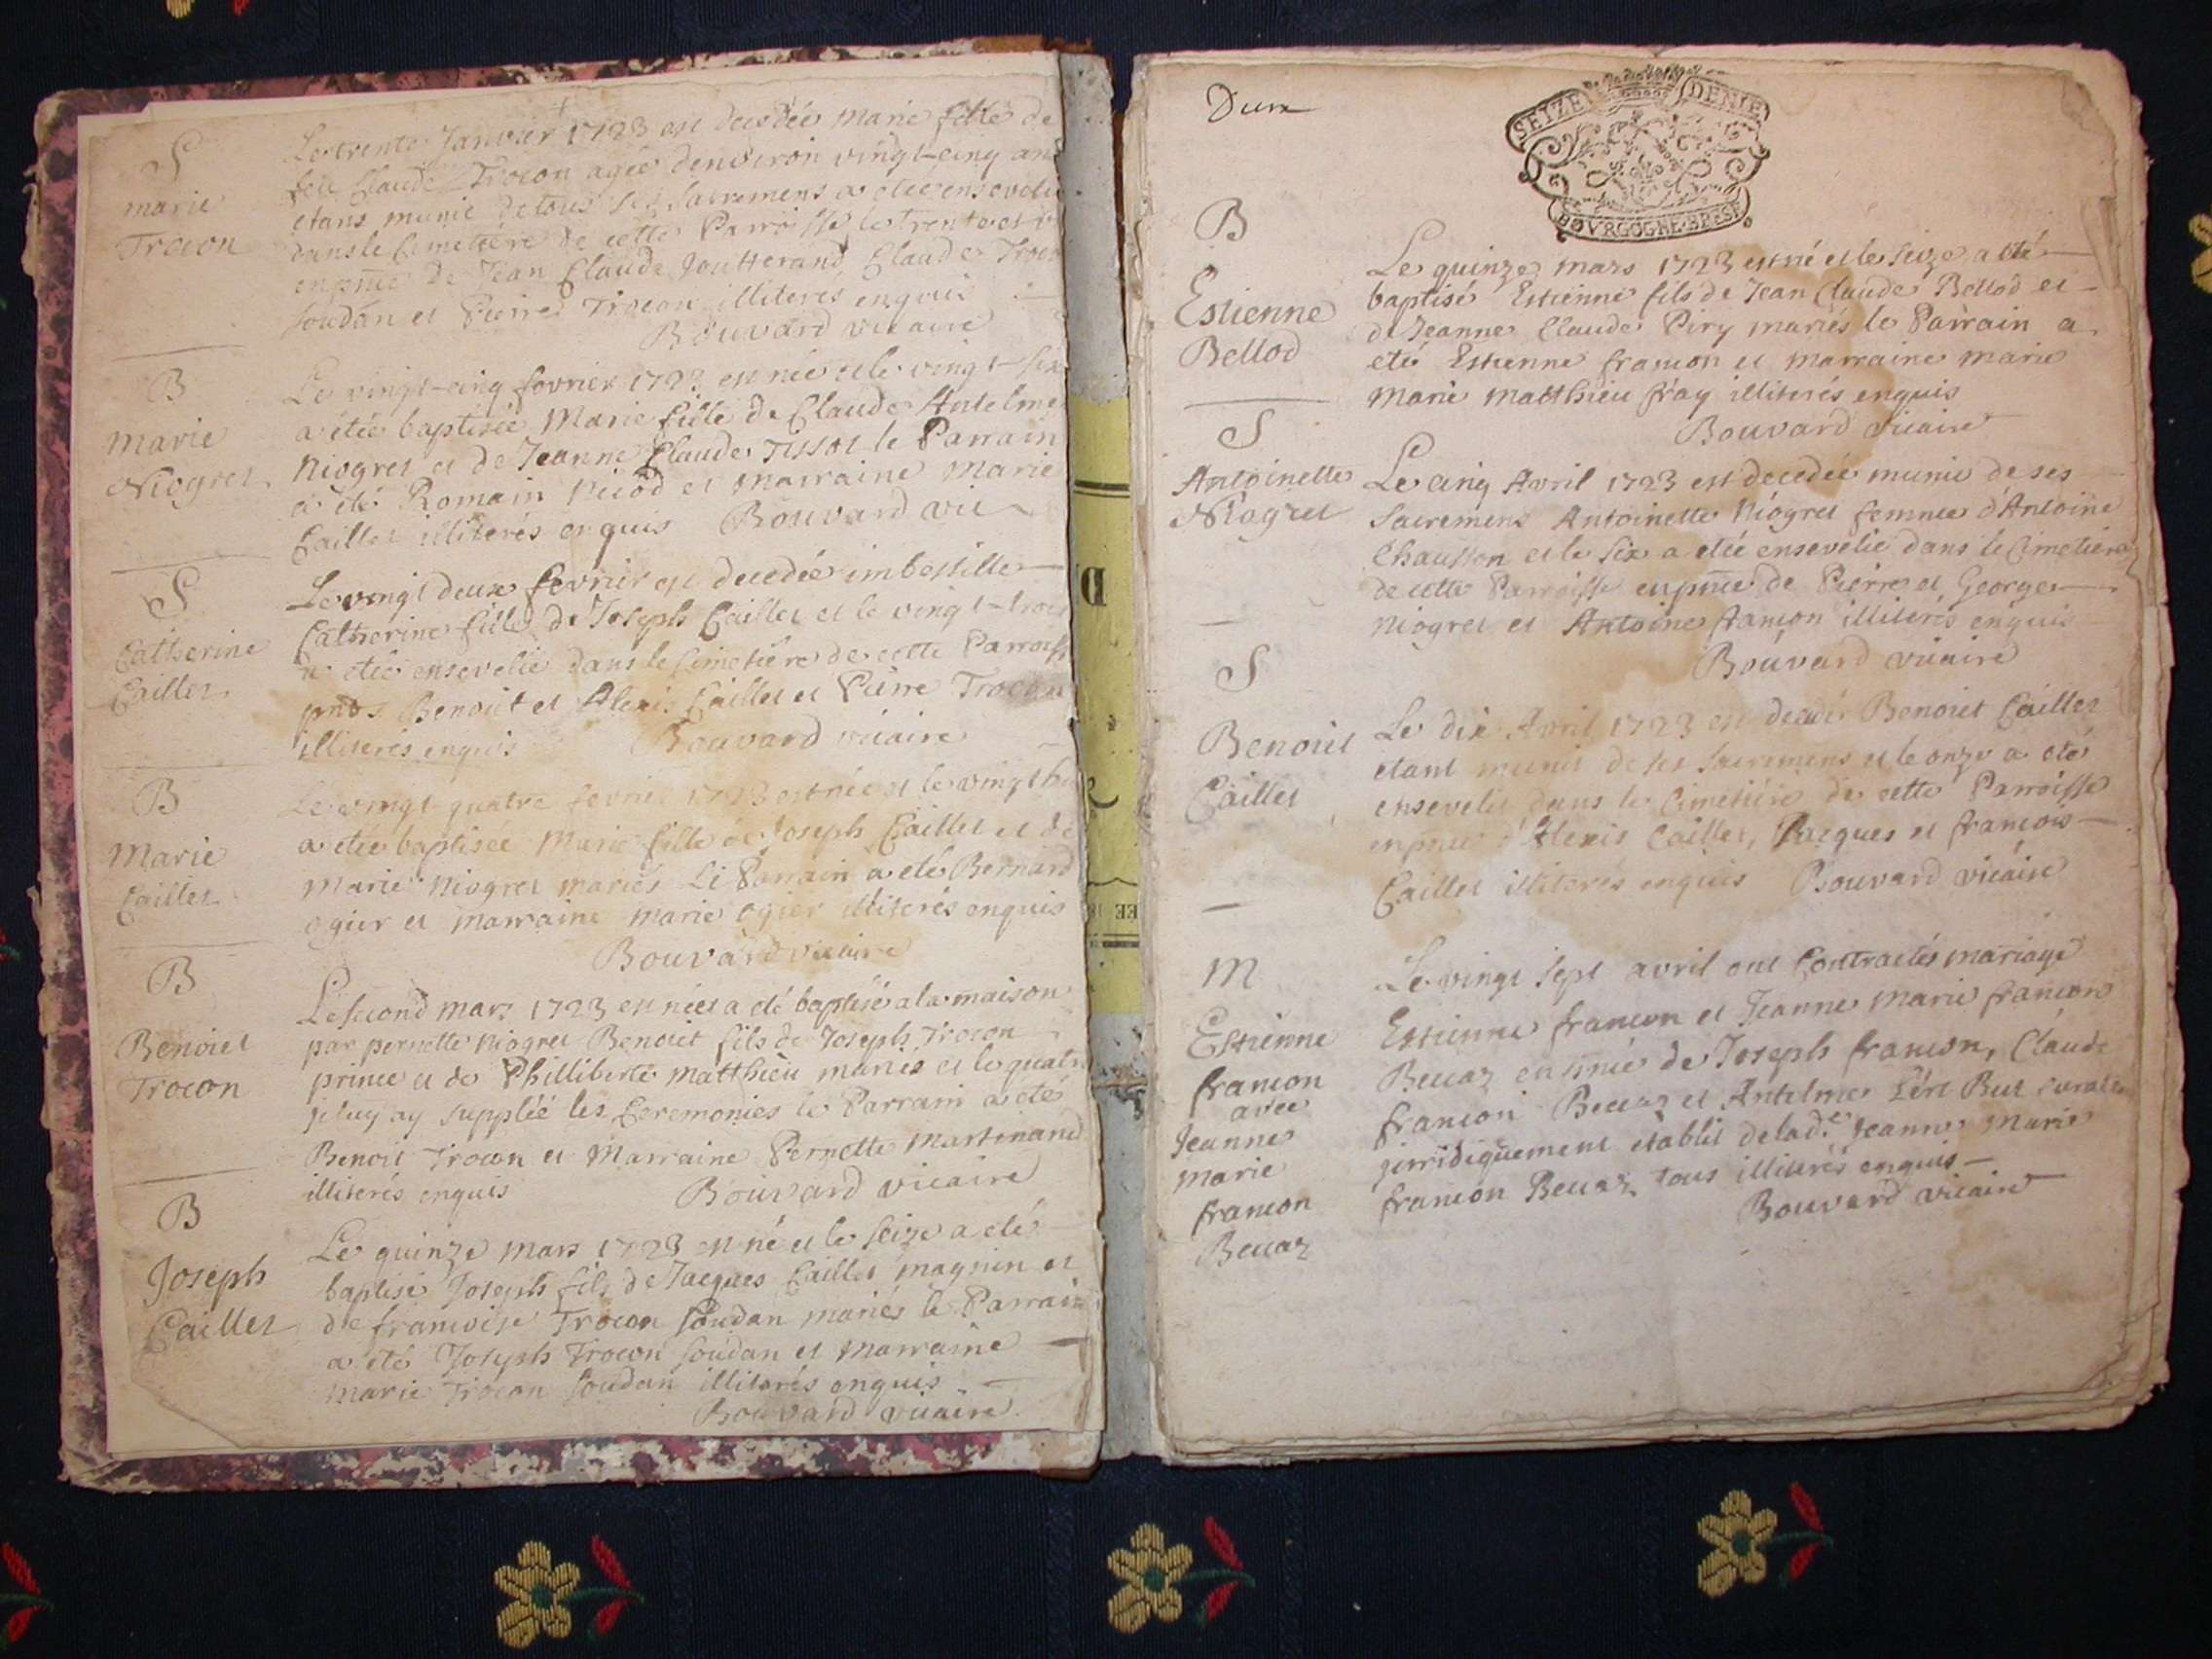 S
marie
Trocon
Le trente Janvier 1723 est decedée marie fille de
feu Claude Trocon agée denviron vingt-cinq ans
etans munie de tous ses sacremens a etée ensevelie
dans le Cimetiére de cette Parroisse le trente et
en pnce de Jean Claude Joutterand Claude Trocon
soudan et Pierre Trocon illiterés enquis
Bouvard vicaire
B
marie
Niogret
Le vingt-cinq fevrier 1723 est née et le vingt-six
a étée baptisée Marie fille de Claude Antelme
Niogret et de Jeanne Claude Tissot le Parrain
a été Romain Nicod et marraine Marie
Caillet illiterés enquis Bouvard vic
S
Catherine
Caillet
Le vingt deux fevrier est decedée imbessille
Catherine fille de Joseph Caillet et le vingt-trois
a etée ensevelie dans le Cimetiére de cette Parroisse
pnts Benoit et Alexis Caillet et Pierre Trocon
illiterés enquis Bouvard vicaire
B
Marie
Caillet
Le vingt quatre fevrier 1723 est née et le vingt
a etée baptisée Marie fille de Joseph Caillet et de
Marie Niogret mariés Le Parrain a eté Bernard
ogier et marraine marie ogier illiterés enquis
Bouvard vicaire
B
Benoiet
Trocon
Le second mars 1723 est né et a eté baptisé a la maison
par pernette Niogret Benoiet fils de Joseph Trocon
prince et de Philliberte Matthieu mariés et le quatre
je luy ay suppléé les Ceremonies le Parrain a eté
Benoit Trocon et Marraine Pernette Martinand
illiterés enquis Bouvard vicaire
B
Joseph
Caillet
Le quinze mars 1723 est né et le seize a eté
baptisé Joseph fils de Jacques Caillet magnin et
de francoise Trocon soudan mariés le Parrain
a été Joseph Trocon soudan et Marraine
Marie Trocon soudan illiterés enquis
Bouvard vicaire
SEIZE DENIE
BOVRGOGNE BRESE
B
Estienne
Bellod
Le quinze mars 1723 est né et le seize a été
baptisé Estienne fils de Jean Claude Bellod et
de Jeanne Claude Piry mariés le Parrain a
eté Estienne francon et marraine marie
Marie Matthieu fray illiterés enquis
Bouvard vicaire
S
Antoinette
Niogret
Le cinq Avril 1723 est decedée munie de ses
sacremens Antoinette Niogret femme d'Antoine
Chausson et le six a etée ensevelie dans le Cimetiére
de cette Parroisse en pnce de Pierre et George
Niogret et Antoine francon illiterés enquis
Bouvard vicaire
S
Benoiet
Caillet
Le dix Avril 1723 est decedé Benoiet Caillet
etant munis de ses sacremens et le onze a eté
enseveli dans le Cimetiére de cette Parroisse
en pnce d'Alexis Caillet, Jacques et francois
Caillet illiterés enquis Bouvard vicaire
M
Estienne
francon
avec
Jeanne
marie
francon
Becaz
Le vingt sept avril ont Contractés mariage
Estienne francon et Jeanne Marie francon
Becaz en pnce de Joseph francon, Claude
francon Becaz et Antelme But curateur
jurridiquement establit de lad.e Jeanne Marie
francon Becaz tous illiterés enquis
Bouvard vicaire